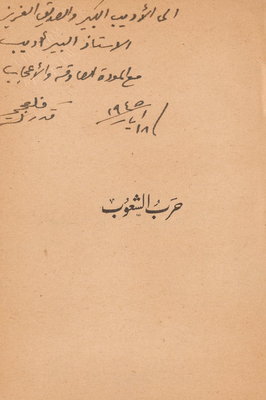 الى الأديب الكبير والصديق العزيز
الاستاذ البير أديب
مع المودة الصادقة والأعجاب
قدري قلعجي
١٨/ ايار ١٩٤٥
حَربُ الشّعُوب